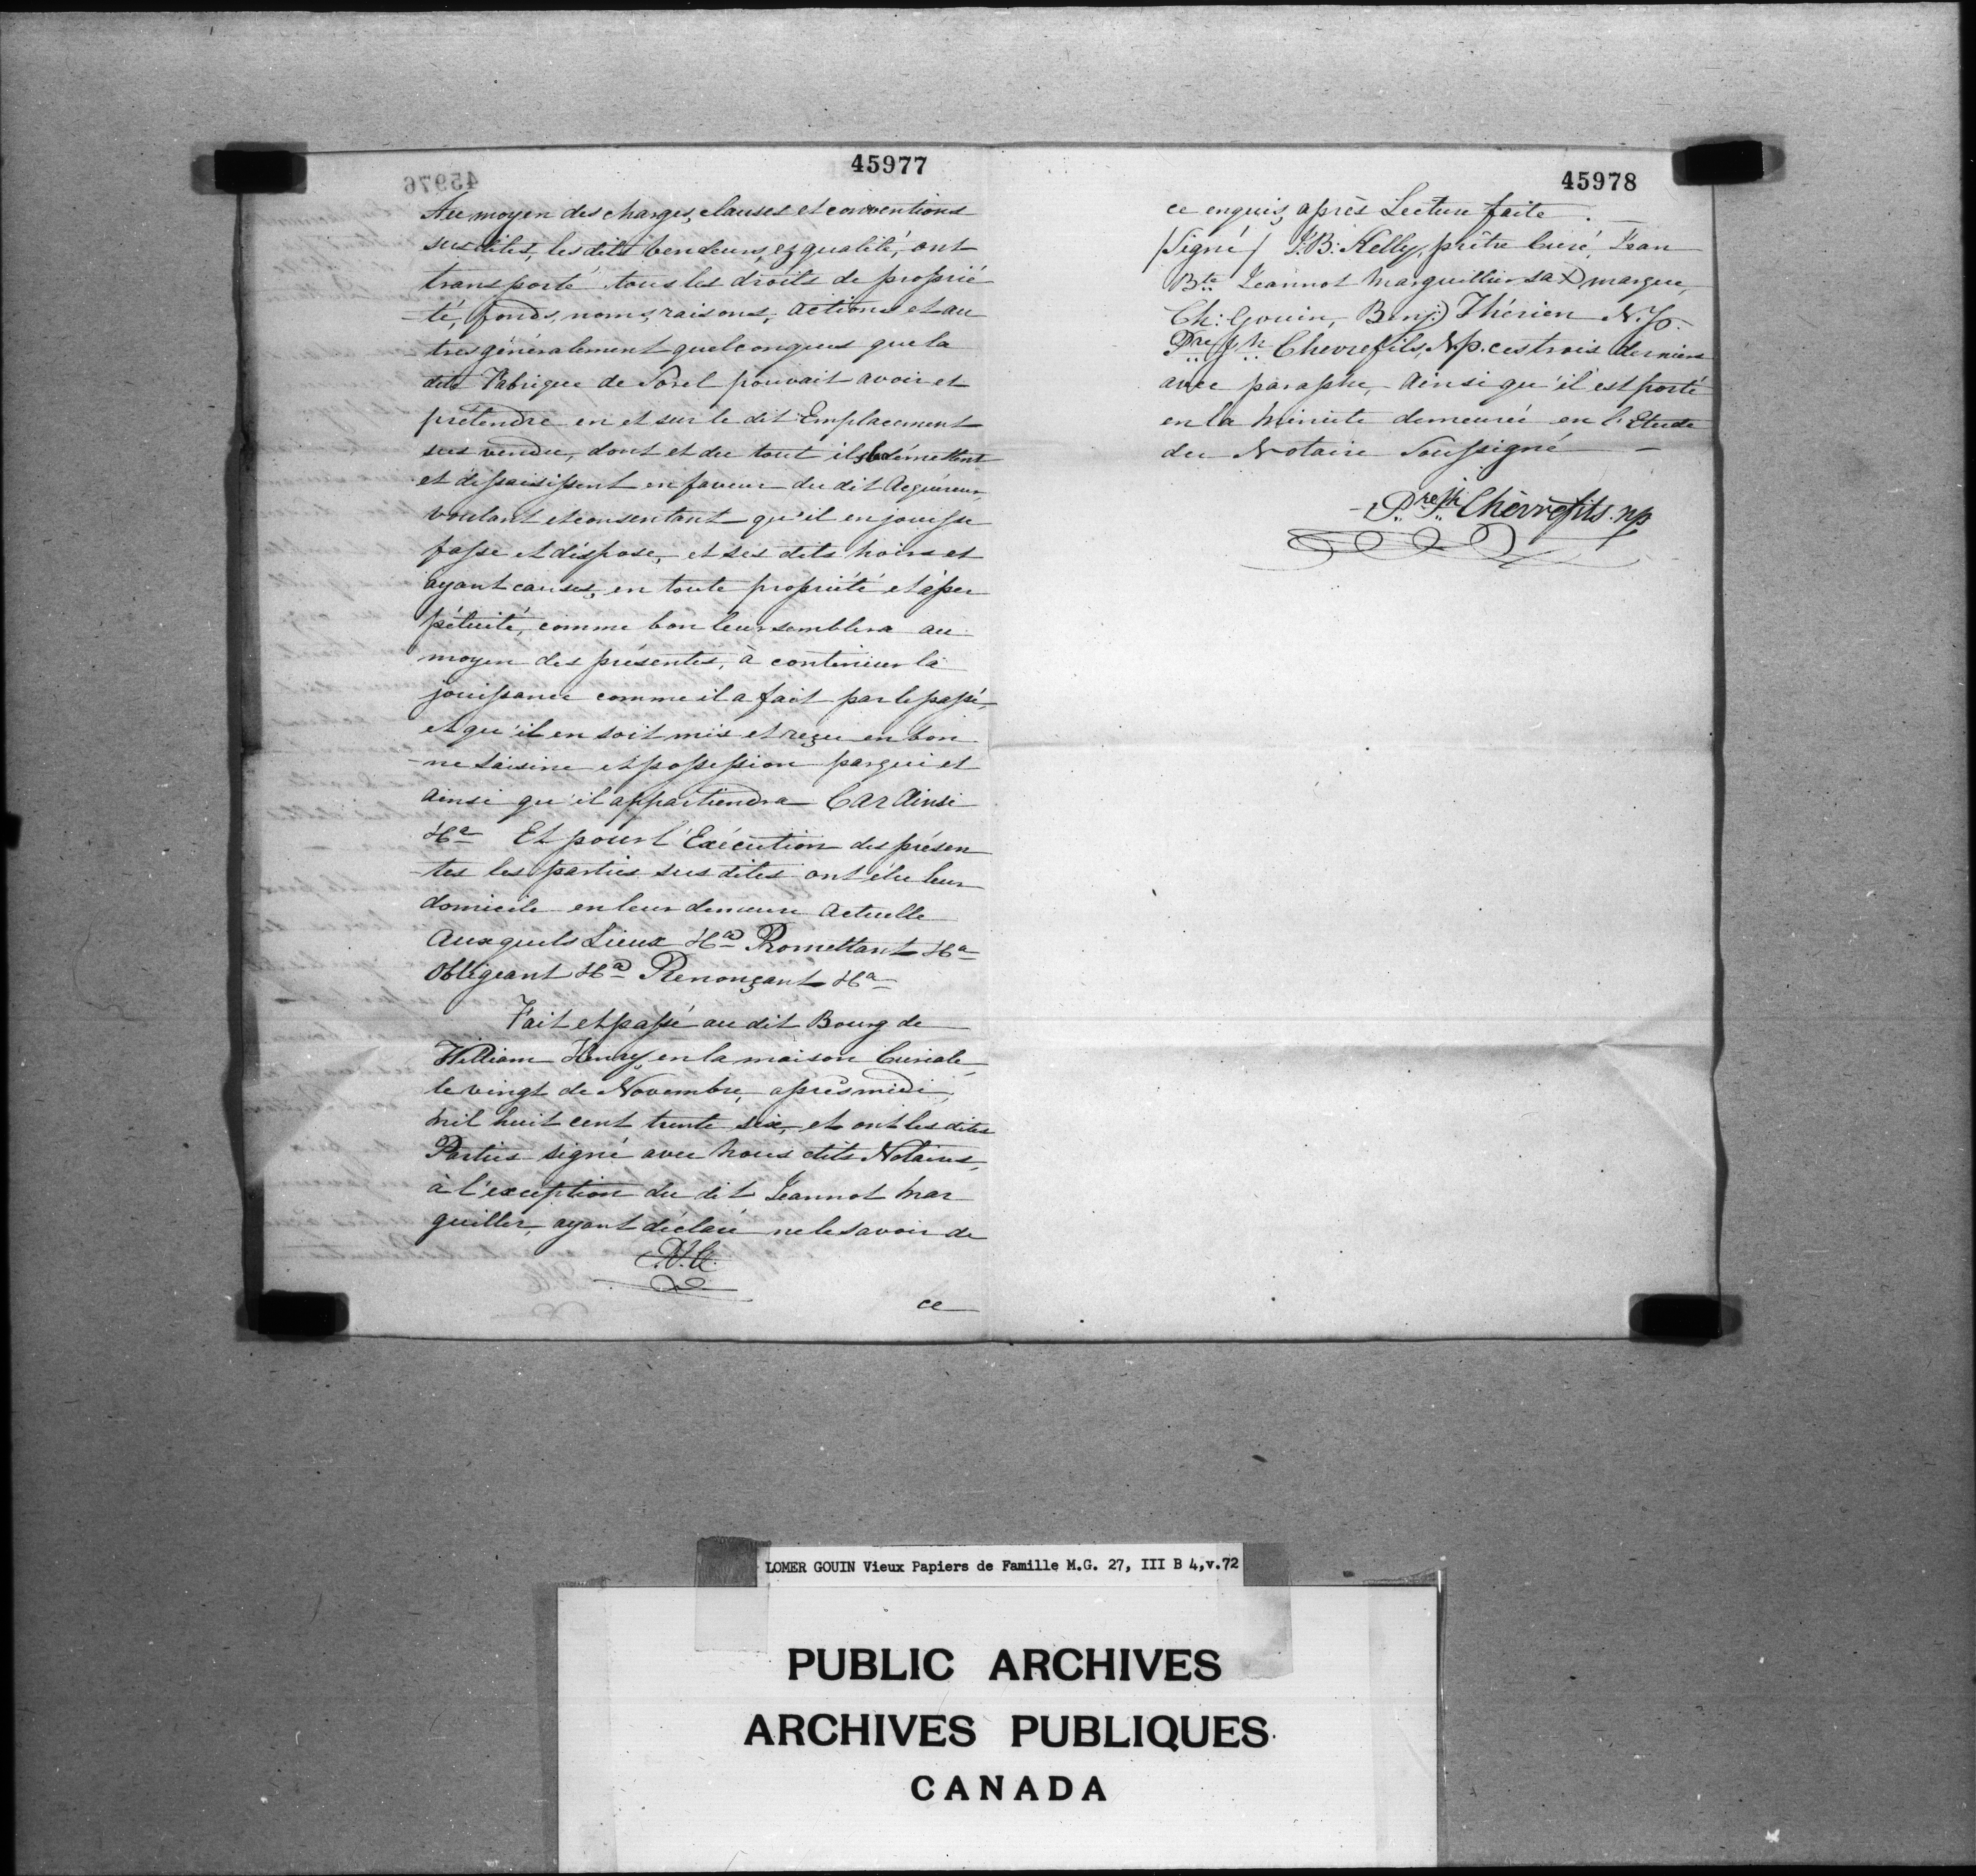 45977
Au moyen des charges, clauses et conventions
susdites, les dits vendeurs, ez qualité, ont
transporté tous les droits de proprié
-té, fonds, noms, raisons, actions et au
tres généralement quelconques que la
dite Fabrique de Sorel pouvait avoir et
prétendre en et sur le dit Emplacement
sus vendu, dont et du tout ils se démettent
et dessaisissent en faveur du dit Acquéreur,
voulant et consentant qu'il en jouisse
fasse et dispose, et ses dits hoirs et
ayant causes, en toute propriété et à per
pétuité, comme bon leur semblera au
moyen des présentes, à continuer la
jouissance comme il a fait par le passé,
et qu'il en soit mis et reçu en bon
-ne saisine et possession par qui et
ainsi qu'il appartiendra Car Ainsi
&ca Et pour l'Exécution des présen
-tes les parties sus dites ont élu leur
domicile en leur demeure actuelle
Auxquels Lieux &ca Promettant &ca
Obligeant &ca Renonçant &ca
Fait et passé au dit Bourg de
William Henry, en la maison Curiale,
le vingt de Novembre, après midi,
mil huit cent trente six, et ont les dites
Parties signé avec nous dits Notaires,
à l'exception du dit Jeannot Mar
guiller, ayant déclaré ne le savoir de
ce
45978
ce enquis, après Lecture faite. —
(Signé) J. B: Kelly, prêtre Curé, Jean
Bte Jeannot Marguillier sa X marque,
Ch: Gouin, Benj:) Thérien N.P.
Pre Jh Chevrefils, N.p. ces trois derniers
avec paraphe, Ainsi qu'il est porté
en la Minute demeurée en l'Etude
du Notaire Soussigné —
Pre Jh Chèvrefils. np
45976
LOMER GOUIN Vieux Papiers de Famille M.G. 27, III B 4,v.72
PUBLIC ARCHIVES
ARCHIVES PUBLIQUES
CANADA